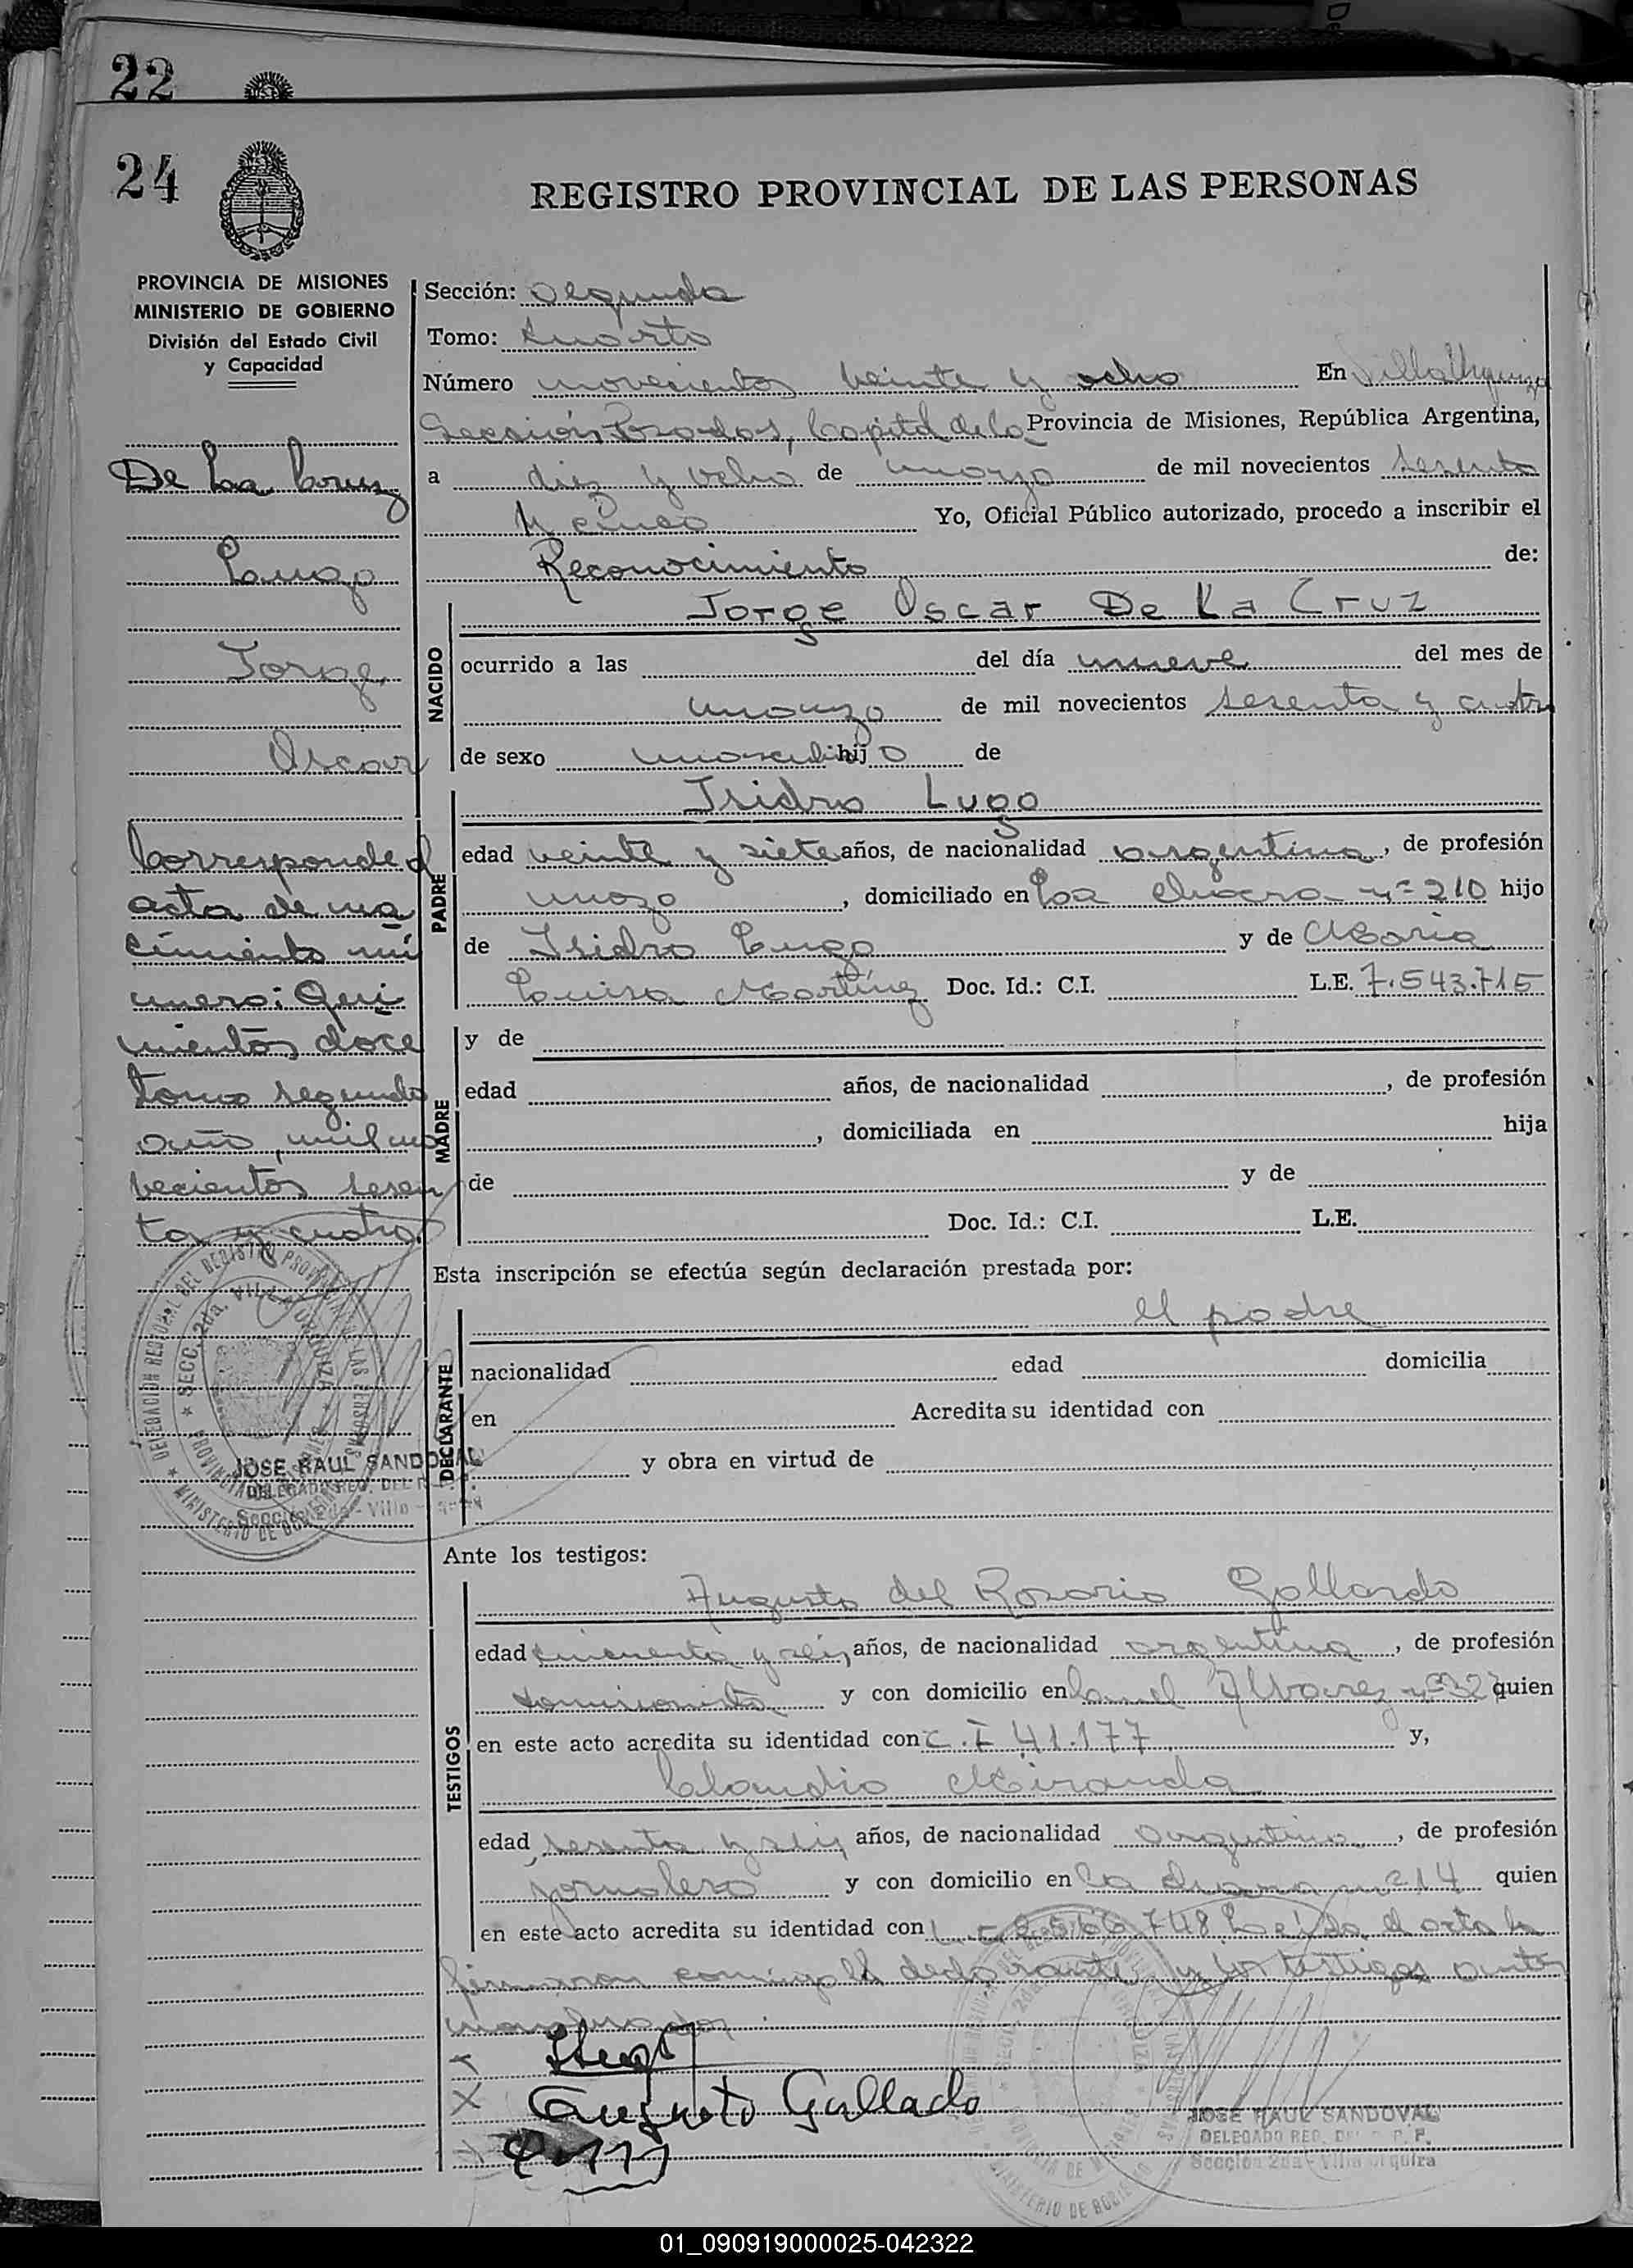 22
24
REGISTRO PROVINCIAL DE LAS PERSONAS
PROVINCIA DE MISIONES
MINISTERIO DE GOBIERNO
División del Estado Civil
y Capacidad
De La Cruz
Lugo
Jorge
Oscar
Corresponde al
acta de na
cimiento nú
mero: Qui
nientos doce
tomo segundo
año, mil no
vecientos sesen
ta y cuatro.
JOSE RAUL SANDOVAL
DELEGADO REG. DEL R.
Sección: segunda
Tomo: Cuarto
Número novecientos veinte y ocho En Villa Urquiza
Sección Posadas, Capital de la Provincia de Misiones, República Argentina,
a diez y ocho de marzo de mil novecientos sesenta
y cinco Yo, Oficial Público autorizado, procedo a inscribir el
Reconocimiento de:
NACIDO
Jorge Oscar De La Cruz
ocurrido a las del día nueve del mes de
marzo de mil novecientos sesenta y cuatro
de sexo masculino hijo de
PADRE
Isidro Lugo
edad veinte y siete años, de nacionalidad argentina, de profesión
mozo, domiciliado en La chacra nº 210 hijo
de Isidro Lugo y de Maria
Luisa Martínez Doc. Id.: C.I. L.E. 7.543.715
MADRE
y de
edad años, de nacionalidad , de profesión
, domiciliada en hija
de y de
Doc. Id.: C.I. L.E.
Esta inscripción se efectúa según declaración prestada por:
DECLARANTE
el padre
nacionalidad edad domicilia
en Acredita su identidad con
y obra en virtud de
Ante los testigos:
TESTIGOS
Augusto del Rosario Gallardo
edad cincuenta y seis años, de nacionalidad argentina, de profesión
comisionista y con domicilio en Alvarez quien
en este acto acredita su identidad con C.I 41.177 y,
Claudio Miranda
edad sesenta y seis años, de nacionalidad argentino, de profesión
jornalero y con domicilio en La chacra nº 14 quien
en este acto acredita su identidad con Leida el acta la
firmaron conmigo el declarante y los testigos antes
nombrados
Augusto Gallardo
JOSE RAUL SANDOVAL
DELEGADO REG. DEL R. P. P.
Sección 2da - Villa Urquiza
01_090919000025-042322